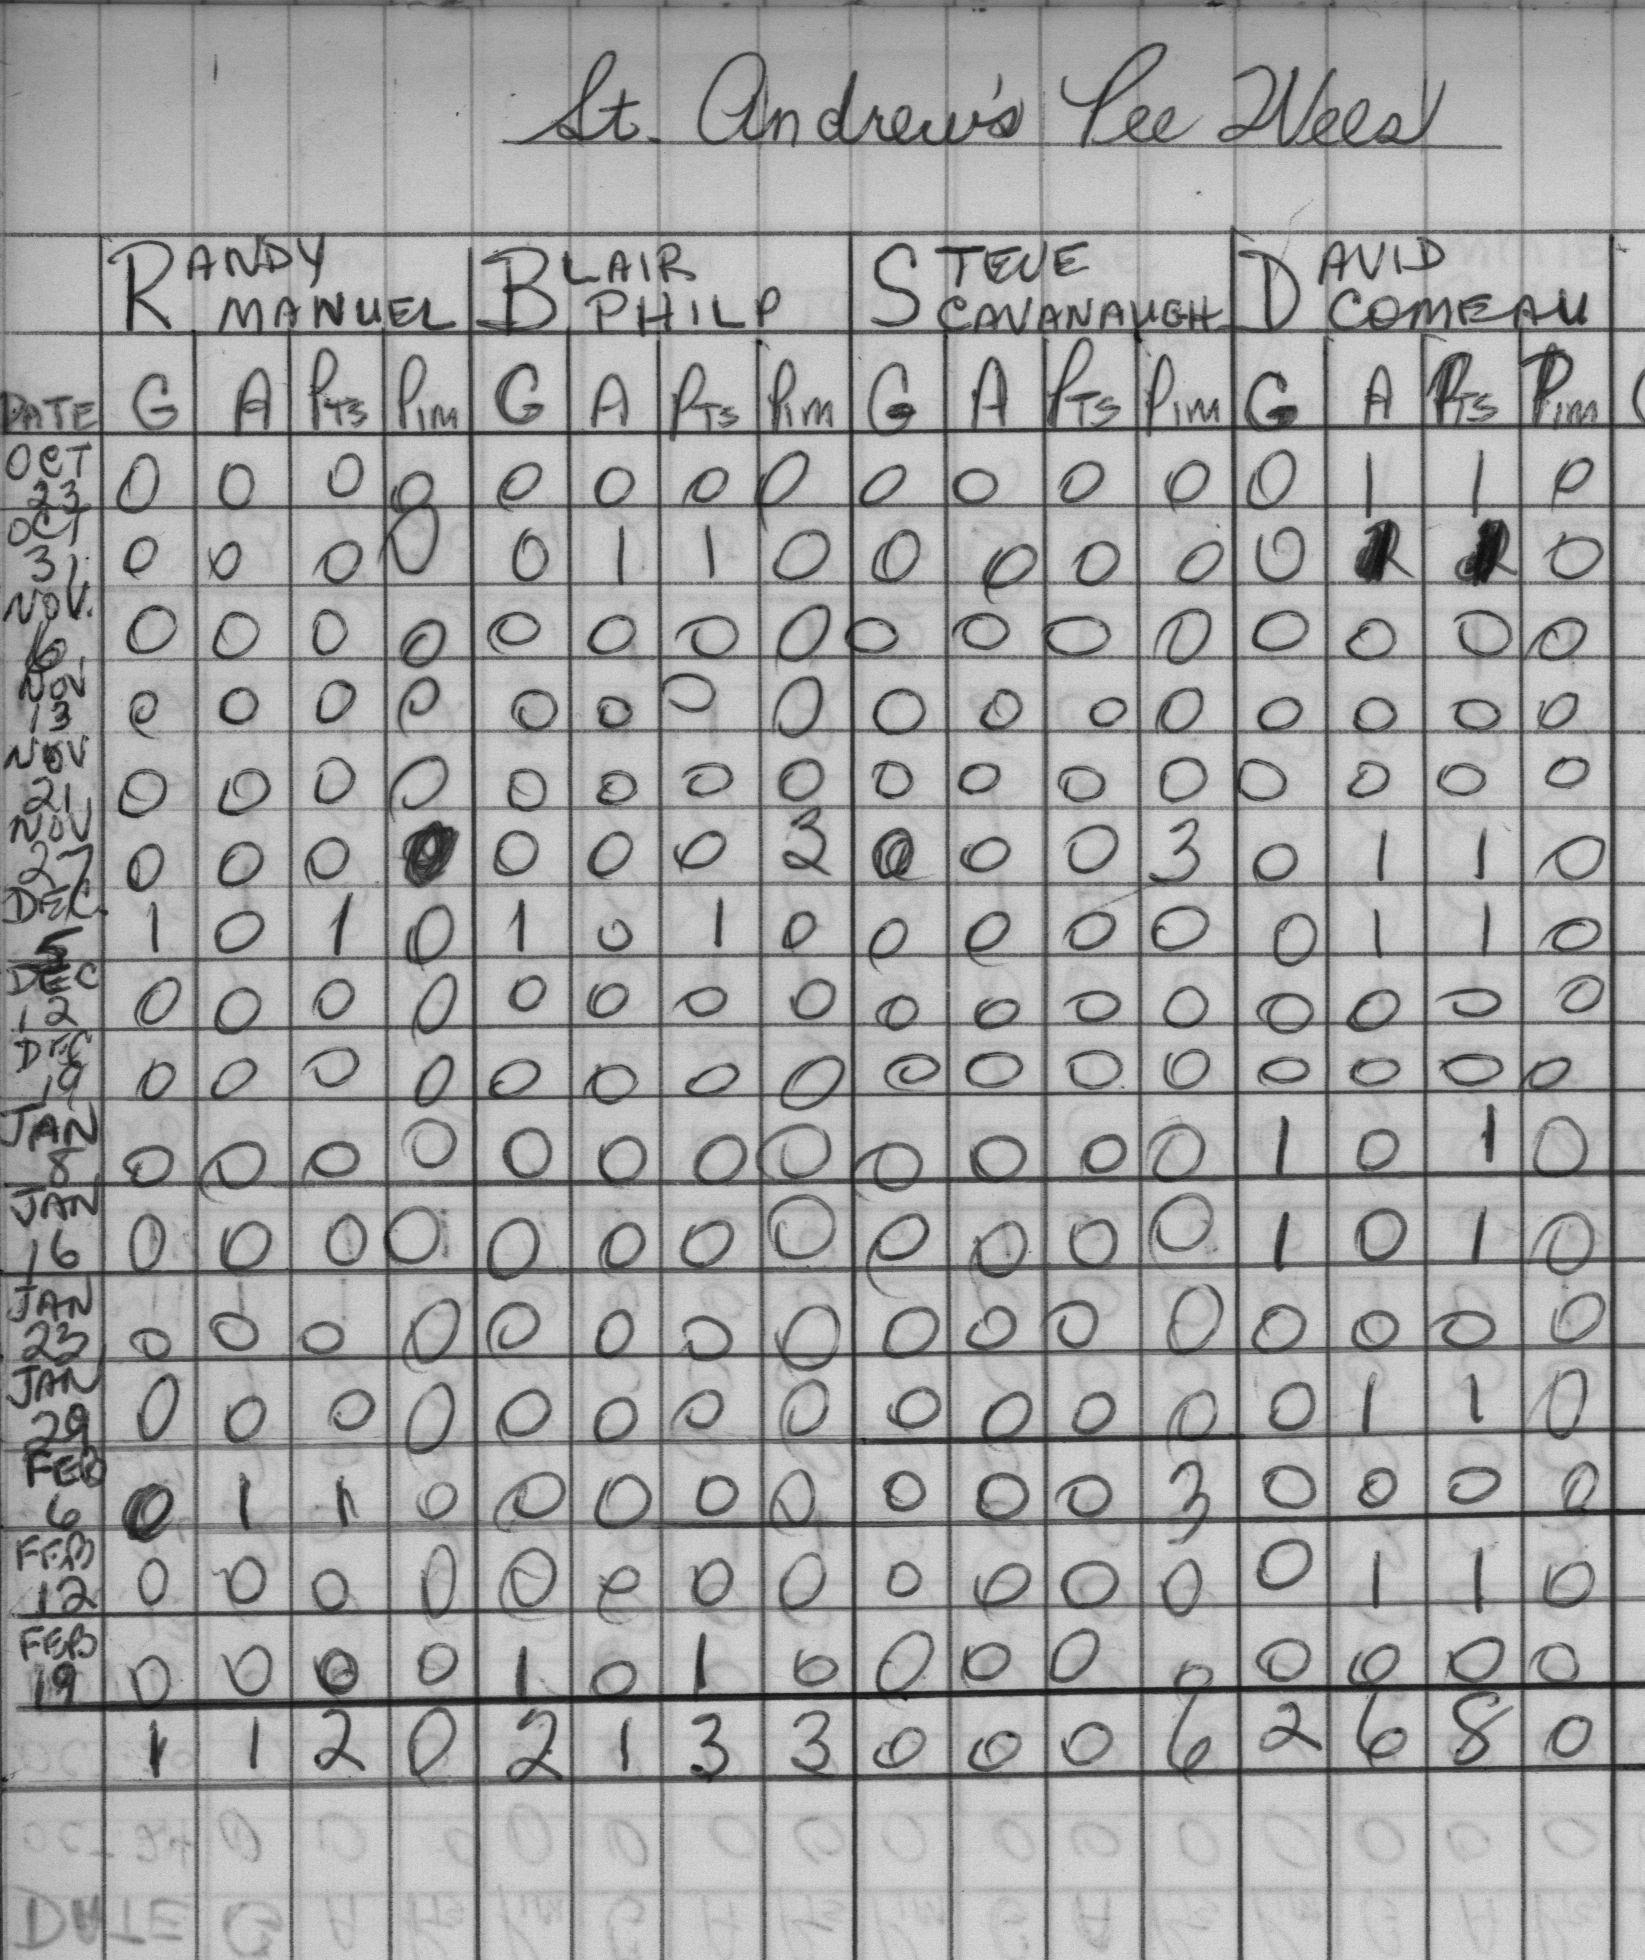 St. Andrew's Pee Wees
RANDY MANUEL BLAIR PHILP STEVE CAVANAUGH DAVID COMEAU
DATE G A PTS PIM G A PTS PIM G A PTS PIM G A PTS PIM
OCT 23 0 0 0 0 0 0 0 0 0 0 0 0 0 1 1 0
OCT 31 0 0 0 0 0 1 1 0 0 0 0 0 0 1 1 0
NOV. 6 0 0 0 0 0 0 0 0 0 0 0 0 0 0 0 0
NOV 13 0 0 0 0 0 0 0 0 0 0 0 0 0 0 0 0
NOV 21 0 0 0 0 0 0 0 0 0 0 0 0 0 0 0 0
NOV 27 0 0 0 0 0 0 0 3 0 0 0 3 0 1 1 0
DEC. 5 1 0 1 0 1 0 1 0 0 0 0 0 0 1 1 0
DEC 12 0 0 0 0 0 0 0 0 0 0 0 0 0 0 0 0
DEC 19 0 0 0 0 0 0 0 0 0 0 0 0 0 0 0 0
JAN 8 0 0 0 0 0 0 0 0 0 0 0 0 1 0 1 0
JAN 16 0 0 0 0 0 0 0 0 0 0 0 0 1 0 1 0
JAN 23 0 0 0 0 0 0 0 0 0 0 0 0 0 0 0 0
JAN 29 0 0 0 0 0 0 0 0 0 0 0 0 0 1 1 0
FEB 6 0 1 1 0 0 0 0 0 0 0 0 3 0 0 0 0
FEB 12 0 0 0 0 0 0 0 0 0 0 0 0 0 1 1 0
FEB 19 0 0 0 0 1 0 1 0 0 0 0 0 0 0 0 0
1 1 2 0 2 1 3 3 0 0 0 6 2 6 8 0